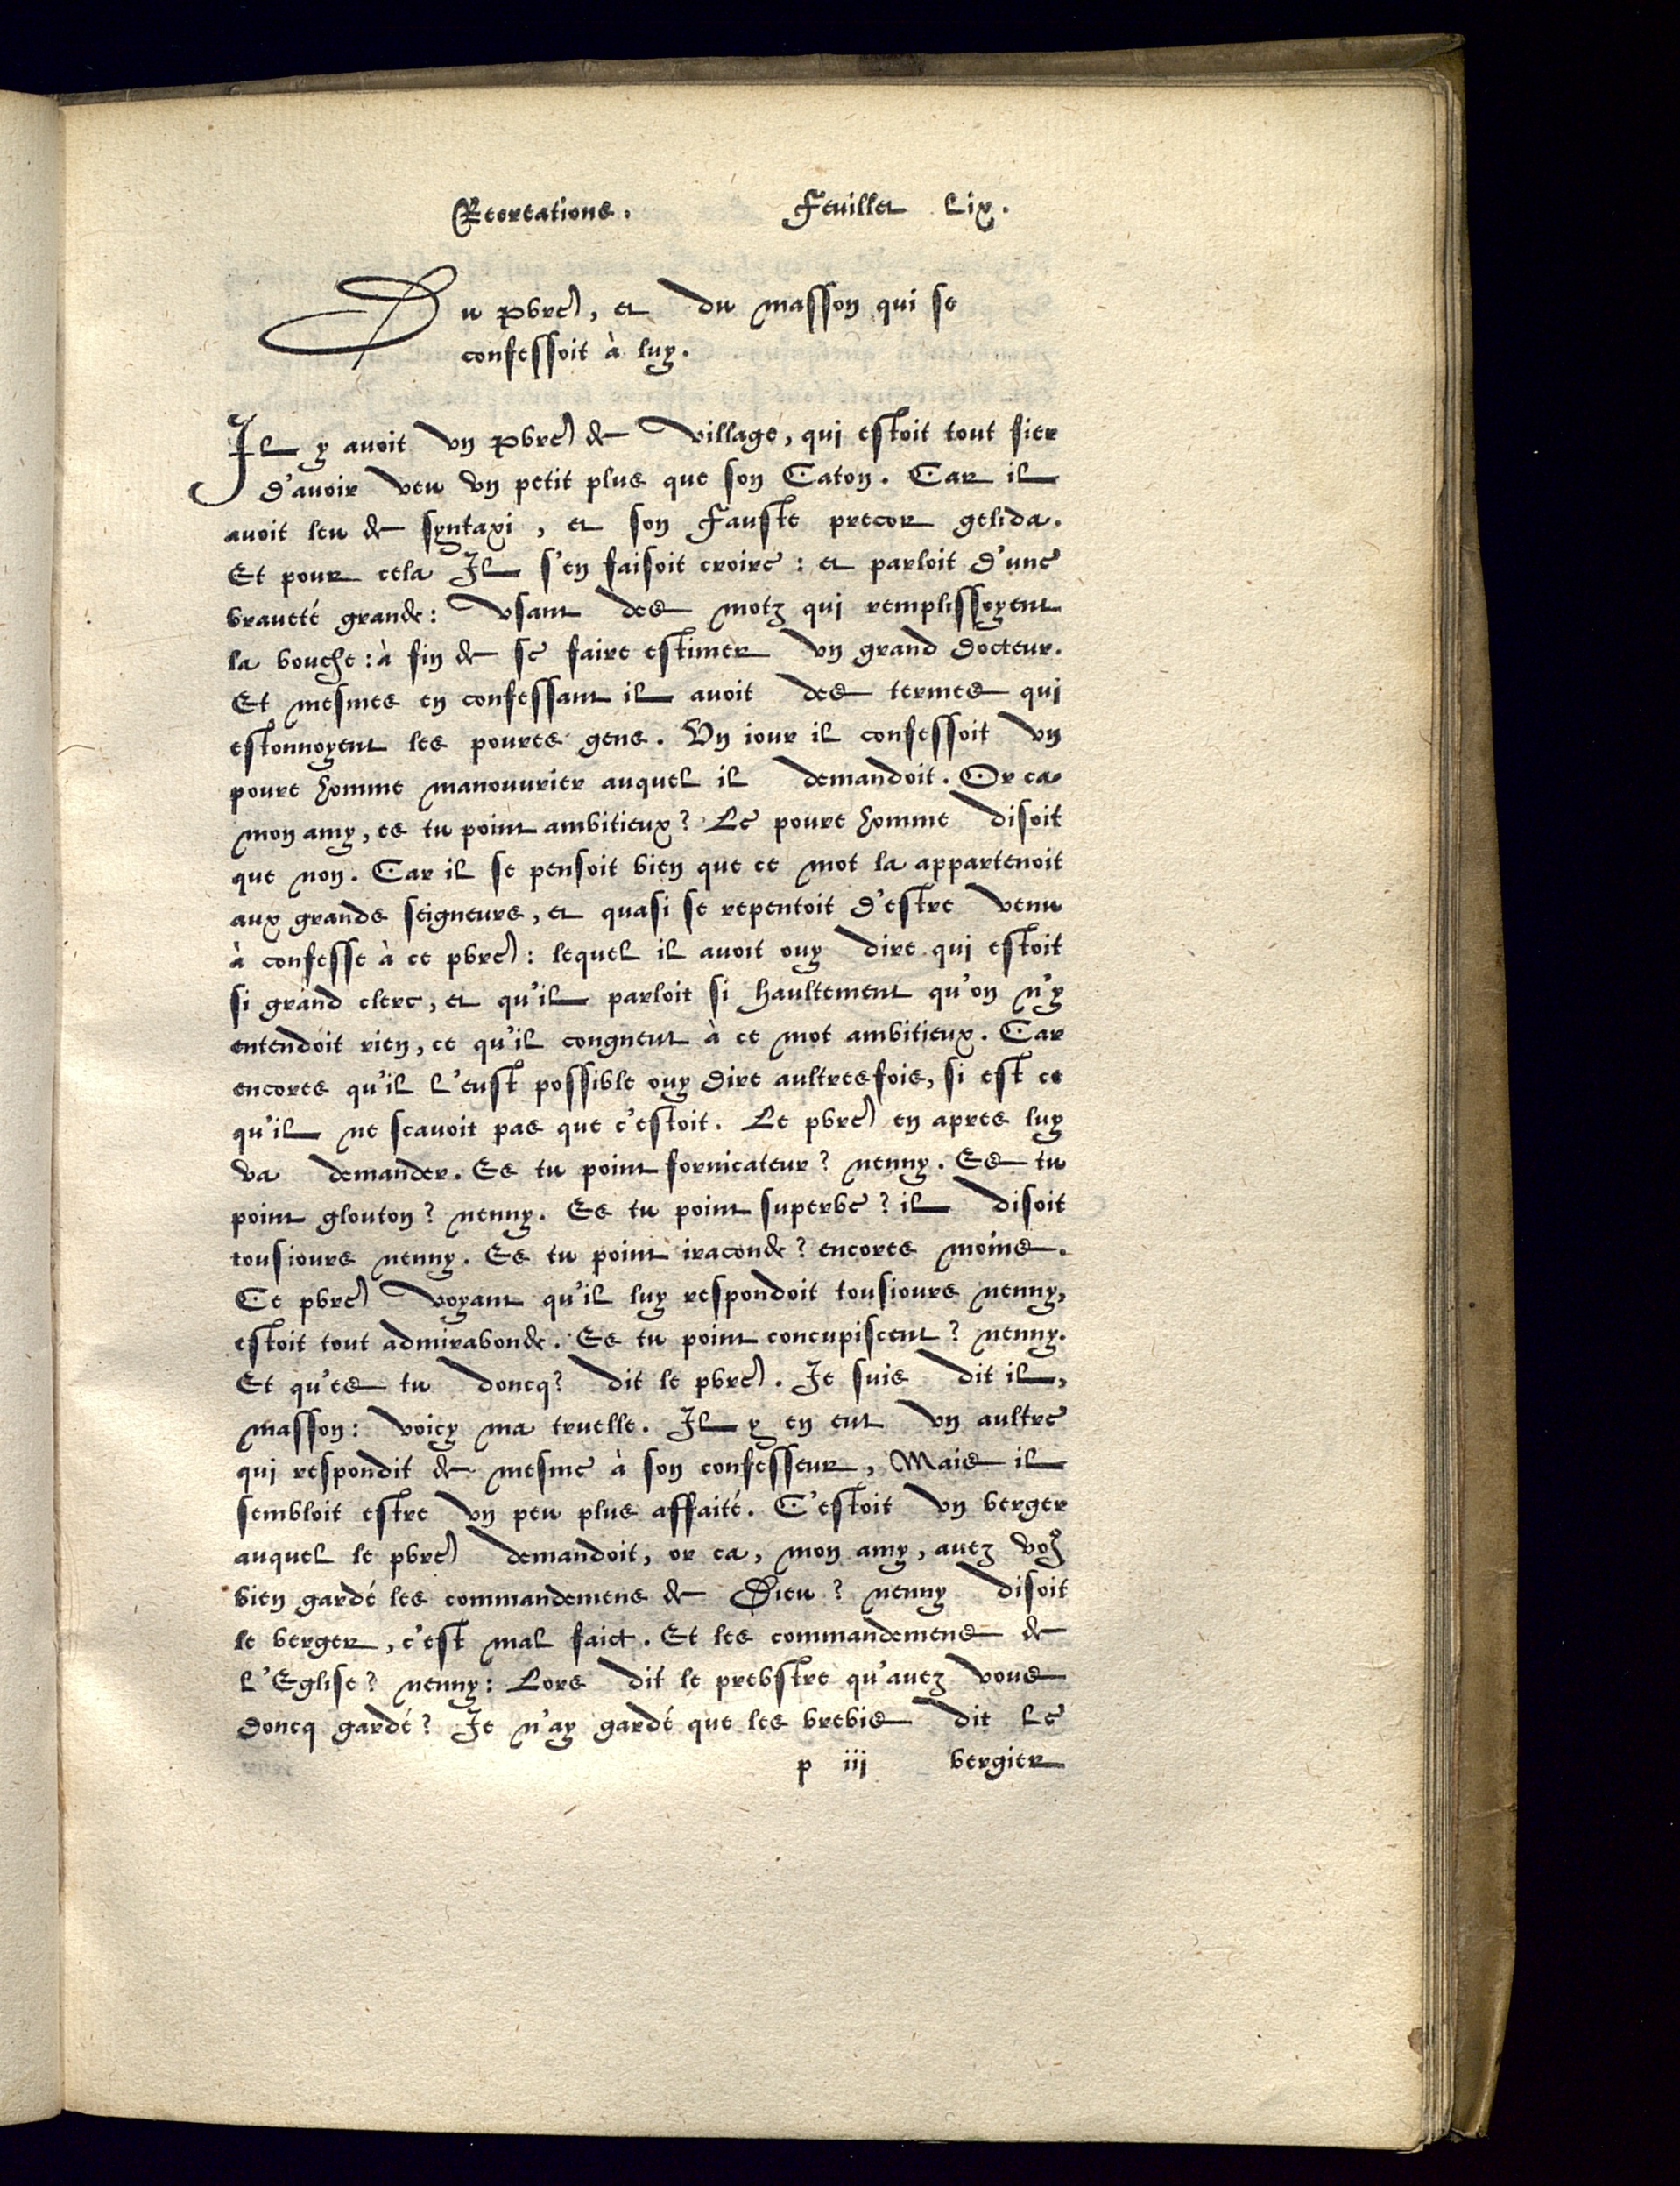 Recreations. Feuillet Lix.
Du pbre, et du masson qui se
confessoit à luy.
Il y avoit vn pbre de village, qui estoit tout fier
d'avoir veu vn petit plus que son Caton. Car il
avoit leu de syntaxi, et son Fauste precor gelida.
Et pour cela Il s'en faisoit croire: et parloit d'une
braveté grande: vsant des motz qui remplissoyent
la bouche: à fin de se faire estimer vn grand docteur.
Et mesmes en confessant il avoit des termes qui
estonnoyent les poures gens. Vn iour il confessoit vn
poure homme manouurier auquel il demandoit. Or ca
mon amy, es tu point ambitieux? Le poure homme disoit
que non. Car il se pensoit bien que ce mot la appartenoit
aux grands seigneurs, et quasi se repentoit d'estre venu
à confesse à ce pbre: lequel il avoit ouy dire qui estoit
si grand clerc, et qu'il parloit si haultement qu'on n'y
entendoit rien, ce qu'il congneut à ce mot ambitieux. Car
encores qu'il l'eust possible ouy dire aultresfois, si est ce
qu'il ne scavoit pas que c'estoit. Le pbre en apres luy
va demander. Es tu point fornicateur? nenny. Es tu
point glouton? nenny. Es tu point superbe? il disoit
tousiours nenny. Es tu point iraconde? encores moins.
Ce pbre voyant qu'il luy respondoit tousiours nenny,
estoit tout admirabonde. Es tu point concupiscent? nenny.
Et qu'es tu doncq? dit le pbre. Je suis dit il,
masson: voicy ma truelle. Il y en eut vn aultre
qui respondit de mesme à son confesseur, Mais il
sembloit estre vn peu plus affaité. C'estoit vn berger
auquel le pbre demandoit, or ca, mon amy, avez vo9
bien gardé les commandemens de Dieu? nenny disoit
le berger, c'est mal faict. Et les commandemens de
l'Eglise? nenny: Lors dit le prebstre qu'avez vous
doncq gardé? Je n'ay gardé que les brebis dit le
p iij bergier